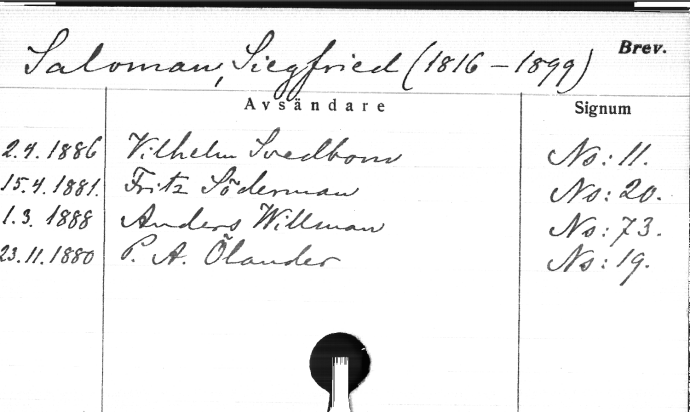 Saloman, Siegfried (1816 – 1899) Brev.
Avsändare Signum
2.4. 1886 Vilhelm Svedbom No: 11.
15.4. 1881. Fritz Söderman No: 20.
1.3. 1888 Anders Willman No: 73.
23.11. 1880 P. A. Ölander No: 19.